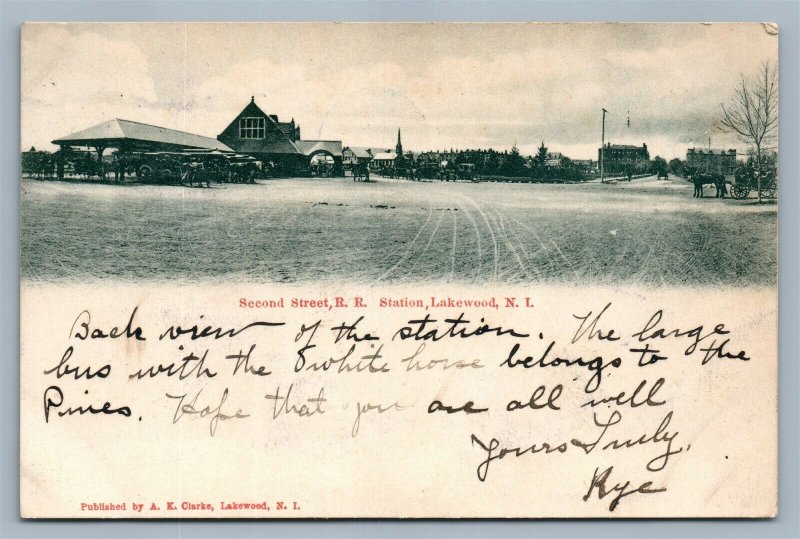 Second Street, R. R. Station, Lakewood, N. I.
Back view of the station. The large
bus with the white horse belongs to the
Pines. Hope that you are all well
Yours Truly,
Rye
Published by A. K. Clarke, Lakewood, N. I.